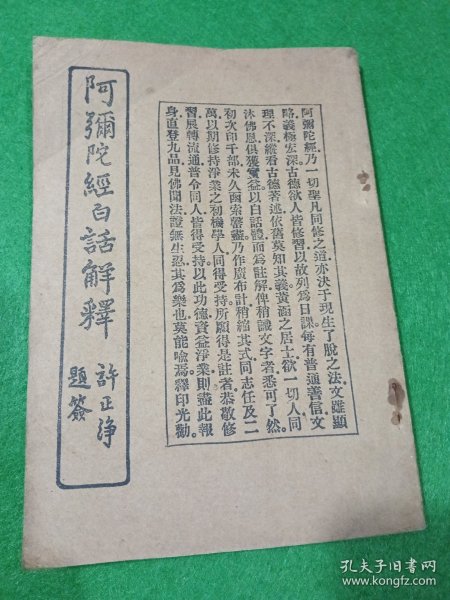 阿彌陀經乃一切聖凡同修之道亦決于現生了脫之法文雖顯
略義極宏深古德欲人皆修習以故列爲日課每有普通善信文
理不深縱看古德著述依舊莫知其義黃涵之居士欲一切人同
沐佛恩俱獲實益以白話體而爲註解俾稍識文字者悉可了然.
初次印千部未久函索罄盡乃作廣布計稍縮其式同志任及二
萬以期修持淨業之初機學人同得受持所願得是註者恭敬修
習展轉流通普令同人皆得受持以此功德資益淨業則盡此報
身直登九品見佛聞法證無生忍其爲樂也莫能喻焉釋印光勸.
阿彌陀經白話解釋
許止淨
題簽
孔夫子旧书网
www.kongfz.com